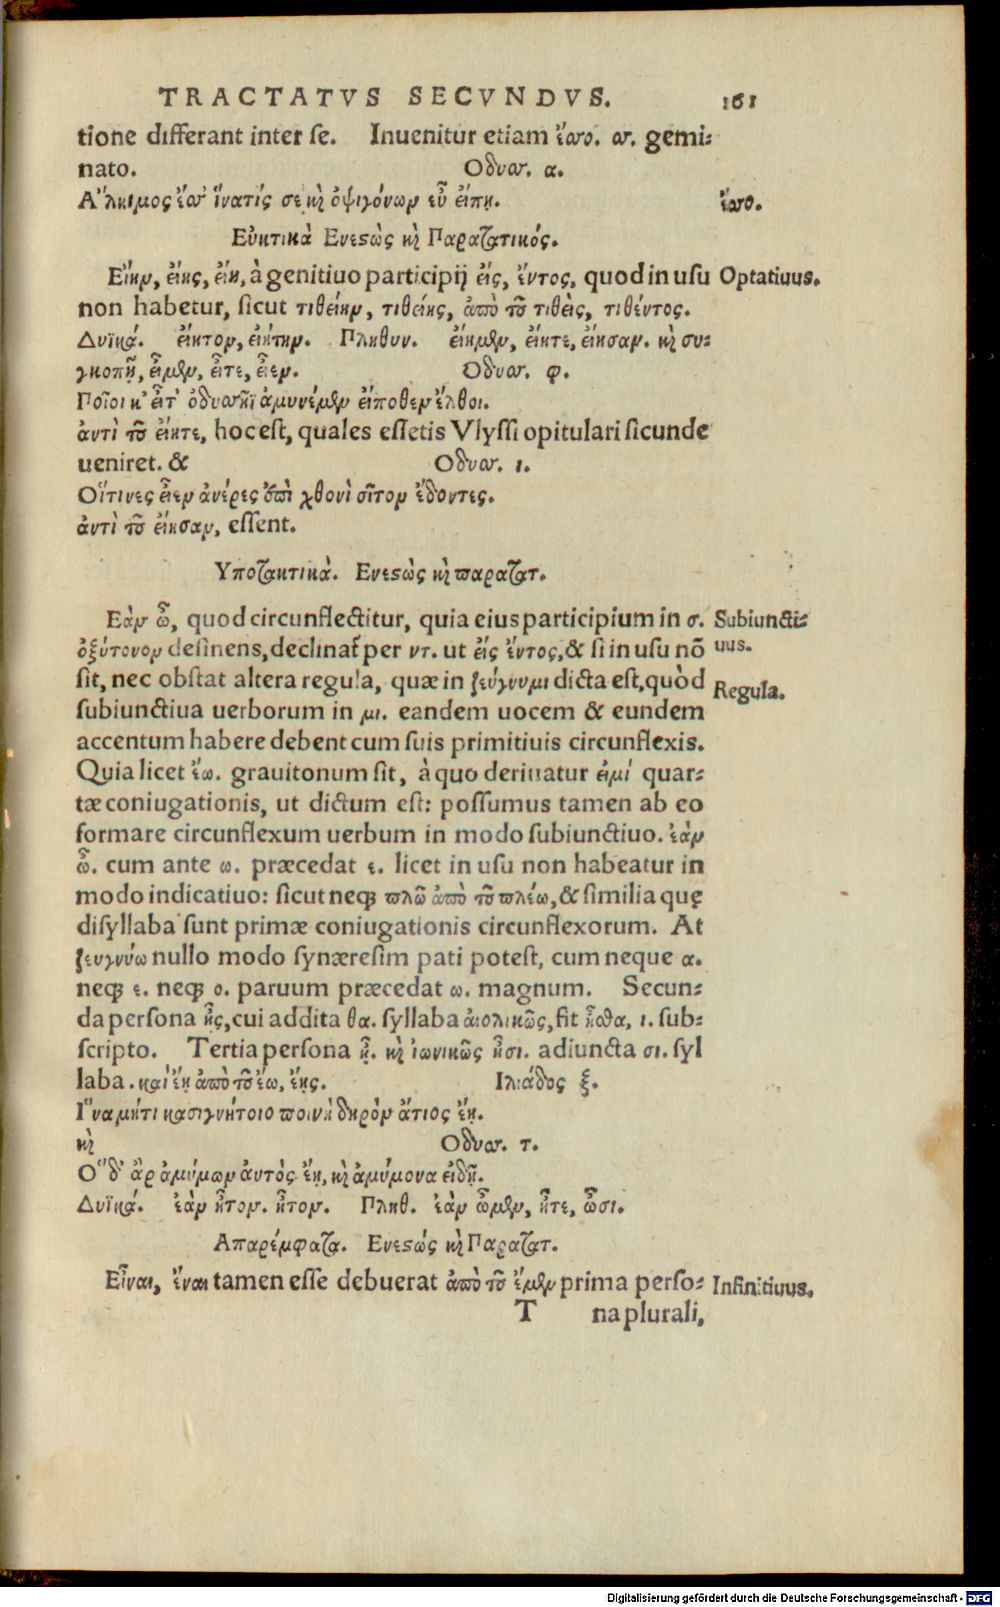 TRACTATVS SECVNDVS. 161
tione differant inter se. Inuenitur etiam ἔσσο. σσ. gemi-
nato. Οδυσσ. α.
Αʹλκιμος ἔσσ' ἵνα τίς σε κὶ ὀψιγόνων εὖ εἴπῃ. ἔσσο.
Εὐκτικὰ Ενεστὼς κὶ Παρατατικός.
Εἴην, εἴης, εἴη, à genitiuo participij εἰς, ἔντος, quod in usu Optatiuus.
non habetur, sicut τιθείην, τιθείης, ἀπὸ τοῦ τιθεὶς, τιθέντος.
Δυϊκά. εἴητον, εἰήτην. Πληθυν. εἴημεν, εἴητε, εἴησαν. κὶ συ-
γκοπῇ, εἶμεν, εἶτε, εἶεν. Οδυσσ. φ.
Ποῖοι κ' εἶτ' ὀδυσσῆϊ ἀμυνέμεν εἴποθεν ἔλθοι.
ἀντὶ τοῦ εἴητε, hoc est, quales essetis Vlyssi opitulari sicunde
ueniret. & Οδυσσ. ι.
Οἵτινες εἶεν ἀνέρες ἐπὶ χθονὶ σῖτον ἔδοντες.
ἀντὶ τοῦ εἴησαν, essent.
Υποτακτικὰ. Ενεστὼς κὶ παρατατ.
Εὰν ὦ, quod circunflectitur, quia eius participium in σ. Subiuncti-
ὀξύτονον desinens, declinat̃ per ντ. ut εἰς ἔντος, & si in usu nō uus.
sit, nec obstat altera regula, quæ in ζεύγνυμι dicta est, quòd Regula.
subiunctiua uerborum in μι. eandem uocem & eundem
accentum habere debent cum suis primitiuis circunflexis.
Quia licet ἔω. grauitonum sit, à quo deriuatur εἰμί quar-
tæ coniugationis, ut dictum est: possumus tamen ab eo
formare circunflexum uerbum in modo subiunctiuo. ἐὰν
ὦ. cum ante ω. præcedat ε. licet in usu non habeatur in
modo indicatiuo: sicut neqꝫ πλῶ ἀπὸ τοῦ πλέω, & similia quę
disyllaba sunt primæ coniugationis circunflexorum. At
ζευγνύω nullo modo synæresim pati potest, cum neque α.
neqꝫ ε. neqꝫ ο. paruum præcedat ω. magnum. Secun-
da persona ᾖς, cui addita θα. syllaba αἰολικῶς, fit ᾖσθα, ι. sub-
scripto. Tertia persona ᾖ. κὶ ἰωνικῶς ᾖσι. adiuncta σι. syl
laba. καὶ ἔῃ ἀπὸ τοῦ ἔω, ἔῃς. Ιλιάδος ξ.
Ιʹνα μήτι κασιγνήτοιο ποινὴ δηρὸν ἄτιος ἔῃ.
κὶ Οδυσσ. τ.
Οʹδ' ἂρ ἀμύμων ἀυτὸς ἔῃ, κὶ ἀμύμονα εἰδῇ.
Δυϊκά. ἐὰν ἦτον. ἦτον. Πληθ. ἐὰν ὦμεν, ἦτε, ὦσι.
Απαρέμφατα. Ενεστώς κὶ Παρατατ.
Εἶναι, ἔναι tamen esse debuerat ἀπὸ τοῦ ἔμεν prima perso- Infinitiuus.
T na plurali,
Digitalisierung gefördert durch die Deutsche Forschungsgemeinschaft - DFG